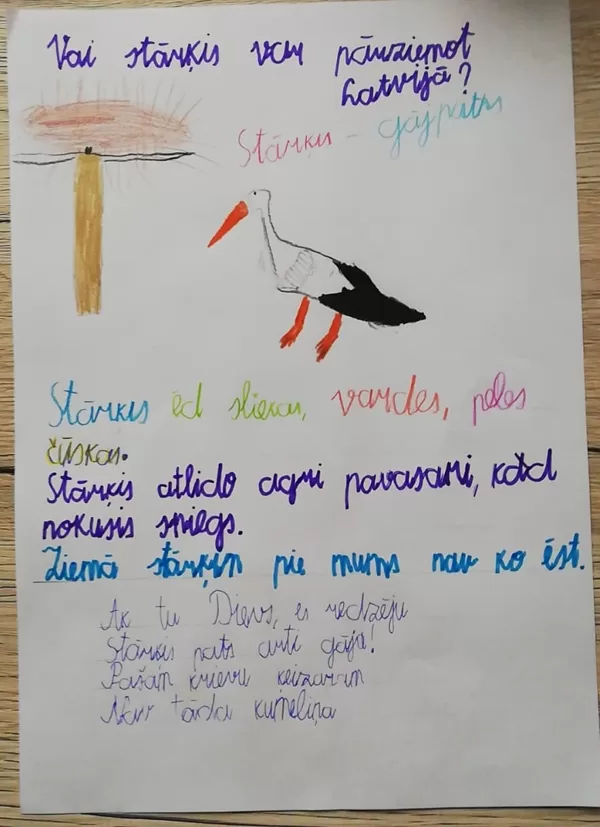 Vai stārķis var pārziemot
Latvijā?
Stārķis - gājputns
Stārķis ēd sliekas, vardes, peles
čūskas.
Stārķis atlido agri pavasarī, kad
nokusis sniegs.
Ziemā stārķim pie mums nav ko ēst.
Ak tu Dievs, es redzēju
Stārķis pats arti gāja!
Pašam krievu ķeizaram
Nav tāda kumeliņa